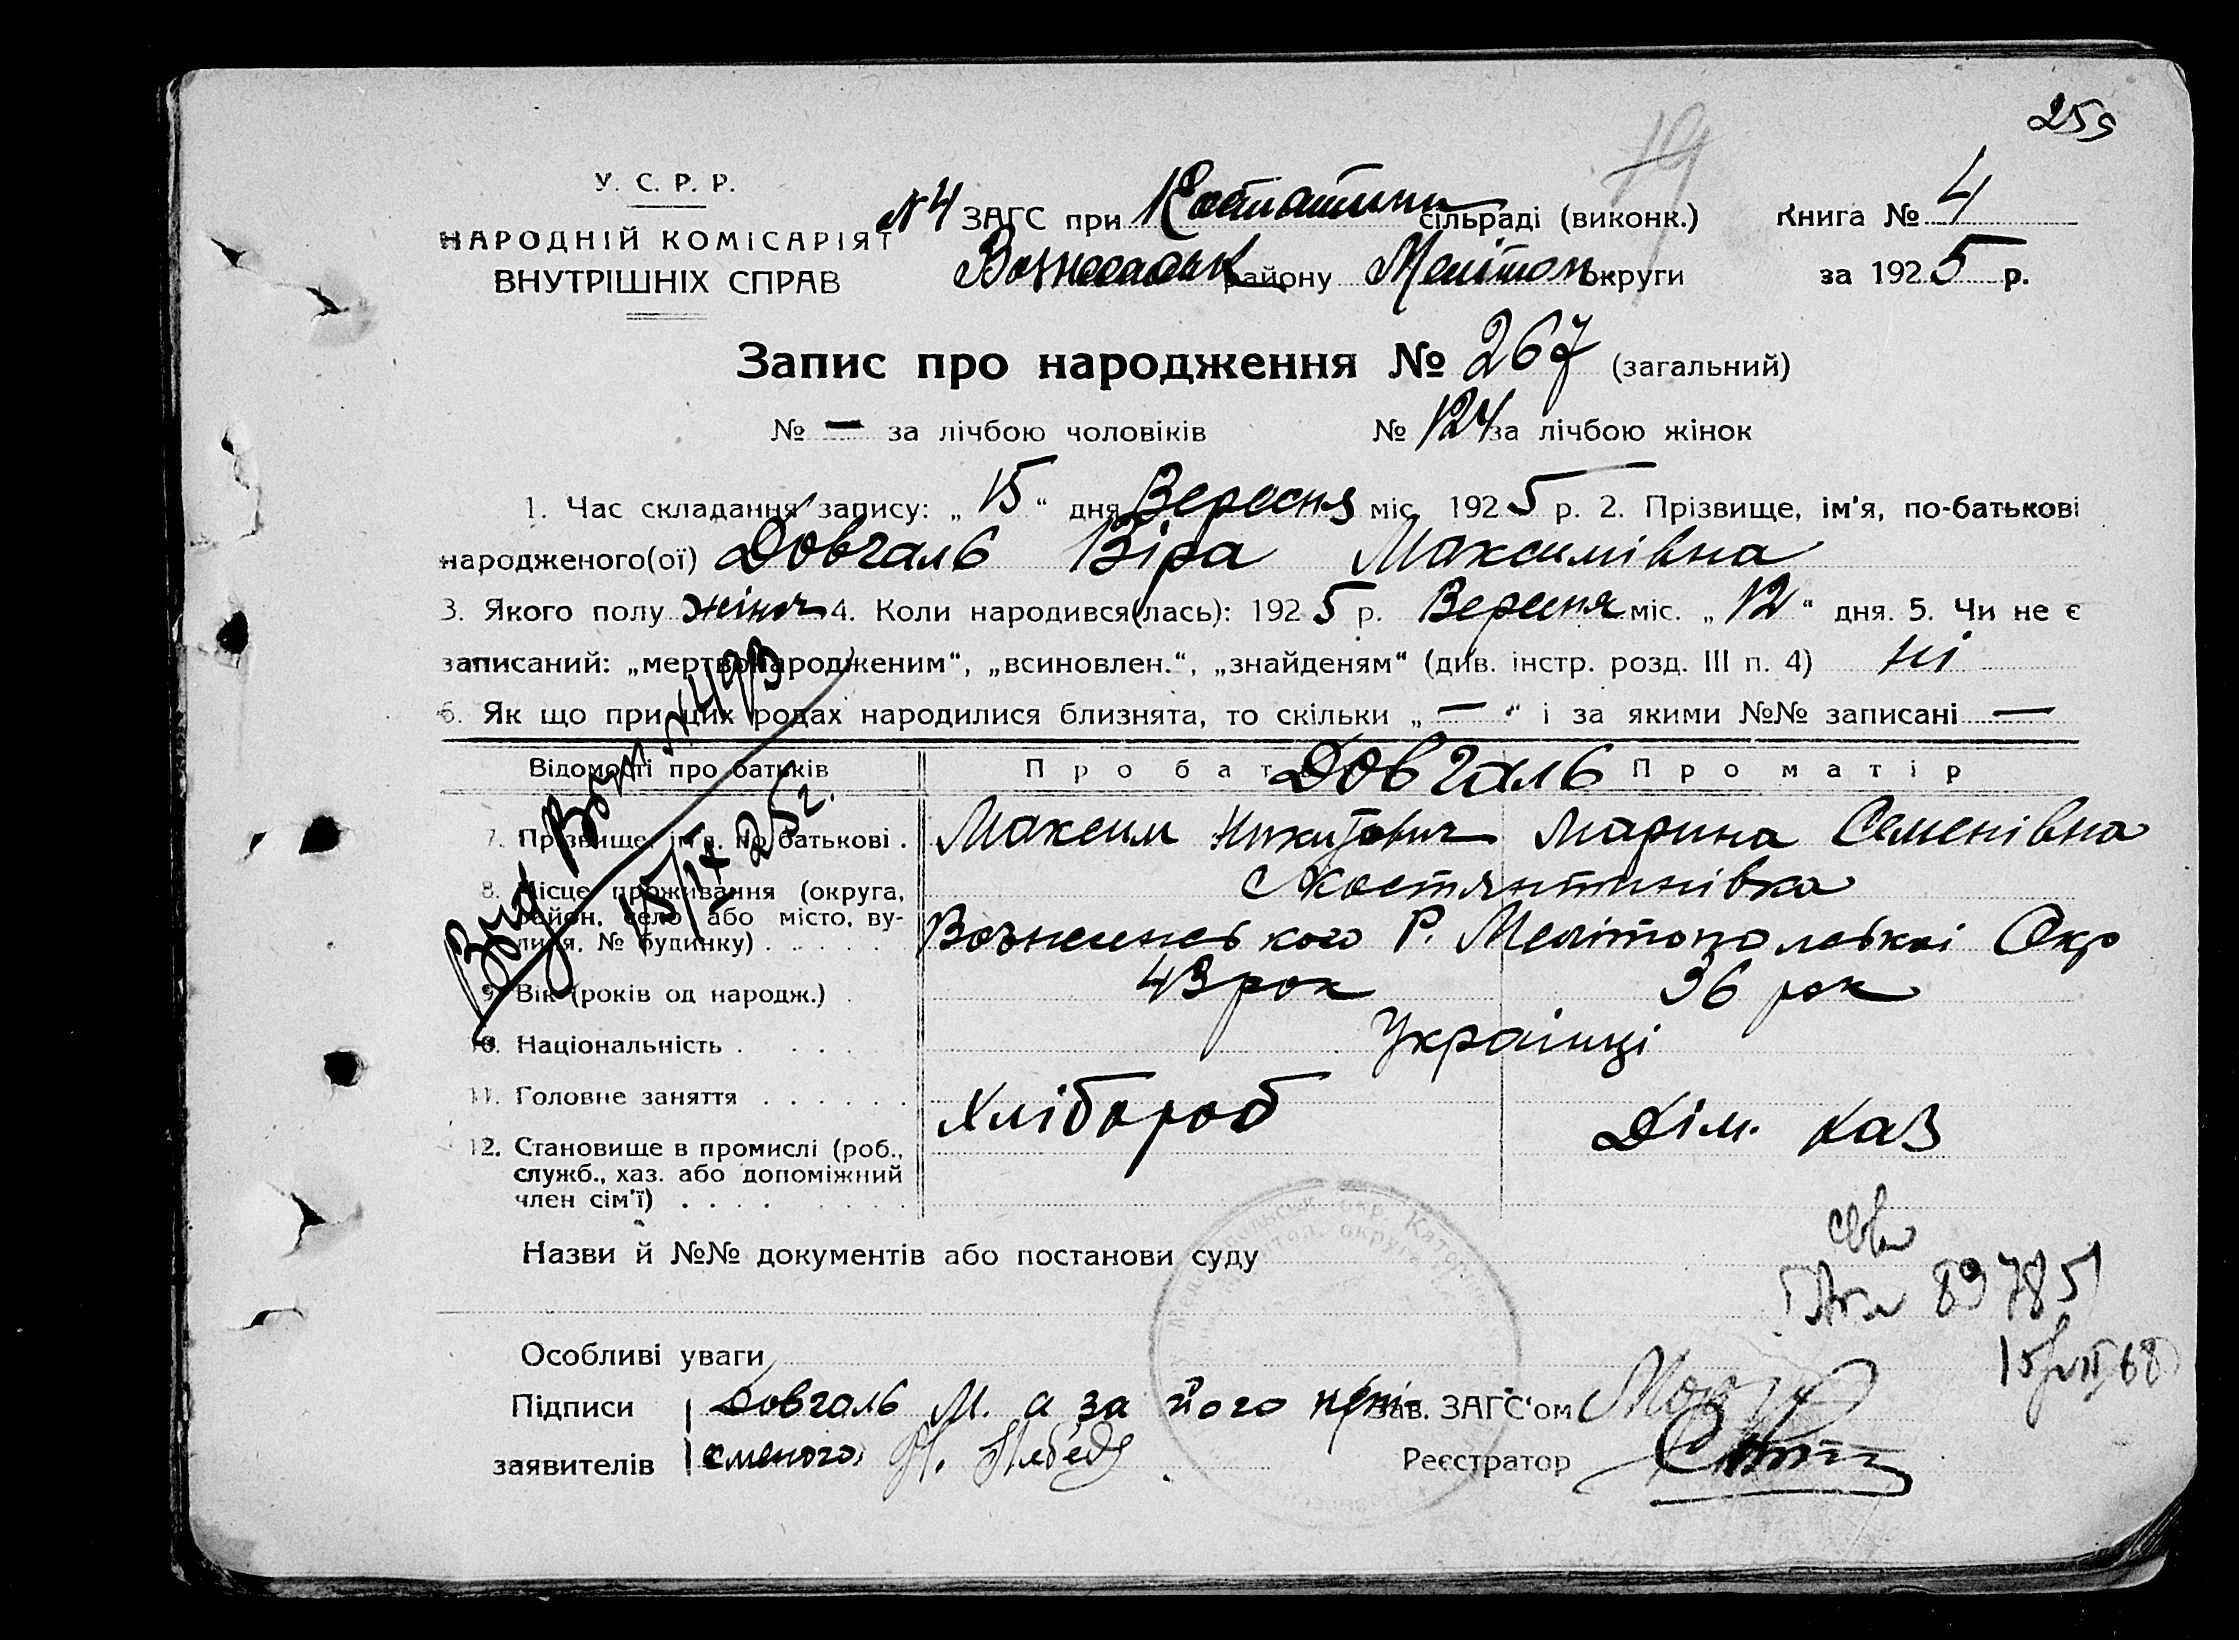 255
19
У. С. Р. Р.
НАРОДНІЙ КОМІСАРІЯТ
ВНУТРІШНІХ СПРАВ
№4 ЗАГС при Костянтин сільраді (виконк.) Книга № 4
району Мелітоп округи за 1925 р.
Запис про народження № 267 (загальний)
№ — за лічбою чоловіків № 124 за лічбою жінок
1. Час складання запису: „15“ дня Вересня міс. 1925 р. 2. Прізвище, ім'я, по-батькові
народженого(ої) Довгаль Віра Максимівна
3. Якого полу жіноч 4. Коли народився(лась): 1925 р. Вересня міс. „12“ дня. 5. Чи не є
записаний: „мертвонародженим“, „всиновлен.“, „знайденям“ (див. інстр. розд. III п. 4) ні
6. Як що при цих родах народилися близнята, то скільки „—“ і за якими №№ записані —
Відомості про батьків Про батька Про матір
Довгаль
7. Прізвище, ім'я, по батькові . Максим Никитович Марина Семенівна
8. Місце проживання (округа, район, село або місто, вулиця, № будинку) . . . . . с Костянтинівка
Вознесенського Р. Мелітопольскої Окр
9. Вік (років од народж.) . 43 рок 36 рок
10. Національність . . . . Українці
11. Головне заняття . . . . . . Хлібороб Дім. хаз
12. Становище в промислі (роб.,
служб., хаз. або допоміжний
член сім'ї) . . . . . . . .
Вид Вып № 493
15/IX 25 г.
Назви й №№ документів або постанови суду
897851
15/VII 68
Особливі уваги
Підписи Довгаль М. а за його непі- Зав. ЗАГС'ом
заявителів сменого Н. Лебедь Реєстратор